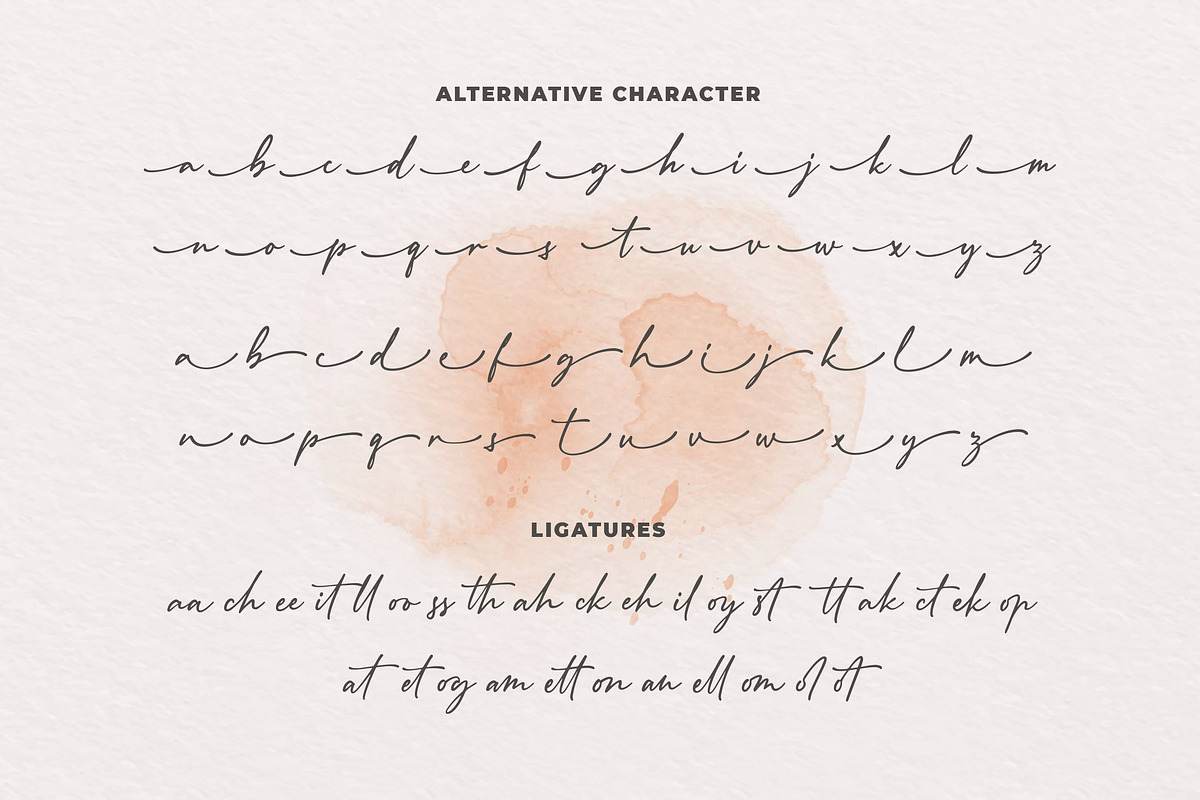 ALTERNATIVE CHARACTER
a b c d e f g h i j k l m
n o p q r s t u v w x y z
a b c d e f g h i j k l m
n o p q r s t u v w x y z
LIGATURES
aa ch ee it ll oo ss th ah ck eh il oy st tt ak ct ek op
at et og am ett on an ell om ol ot